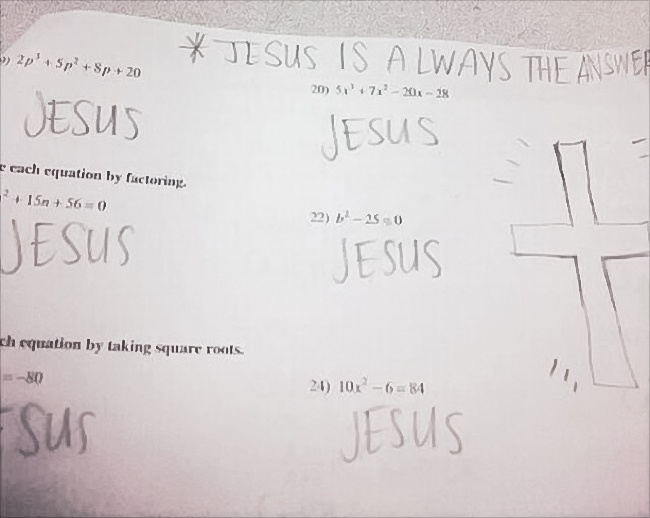 * JESUS IS ALWAYS THE ANSWER
9) 2p³ + 5p² + 8p + 20
20) 5x³ + 7x² − 20x − 28
JESUS
JESUS
each equation by factoring.
² + 15n + 56 = 0
22) b² − 25 = 0
JESUS
JESUS
equation by taking square roots.
= −80
24) 10x² − 6 = 84
ESUS
JESUS